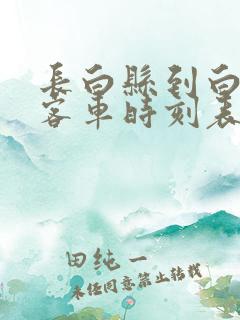 長白縣到白
客車時刻表
田纯一
未经同意禁止转载